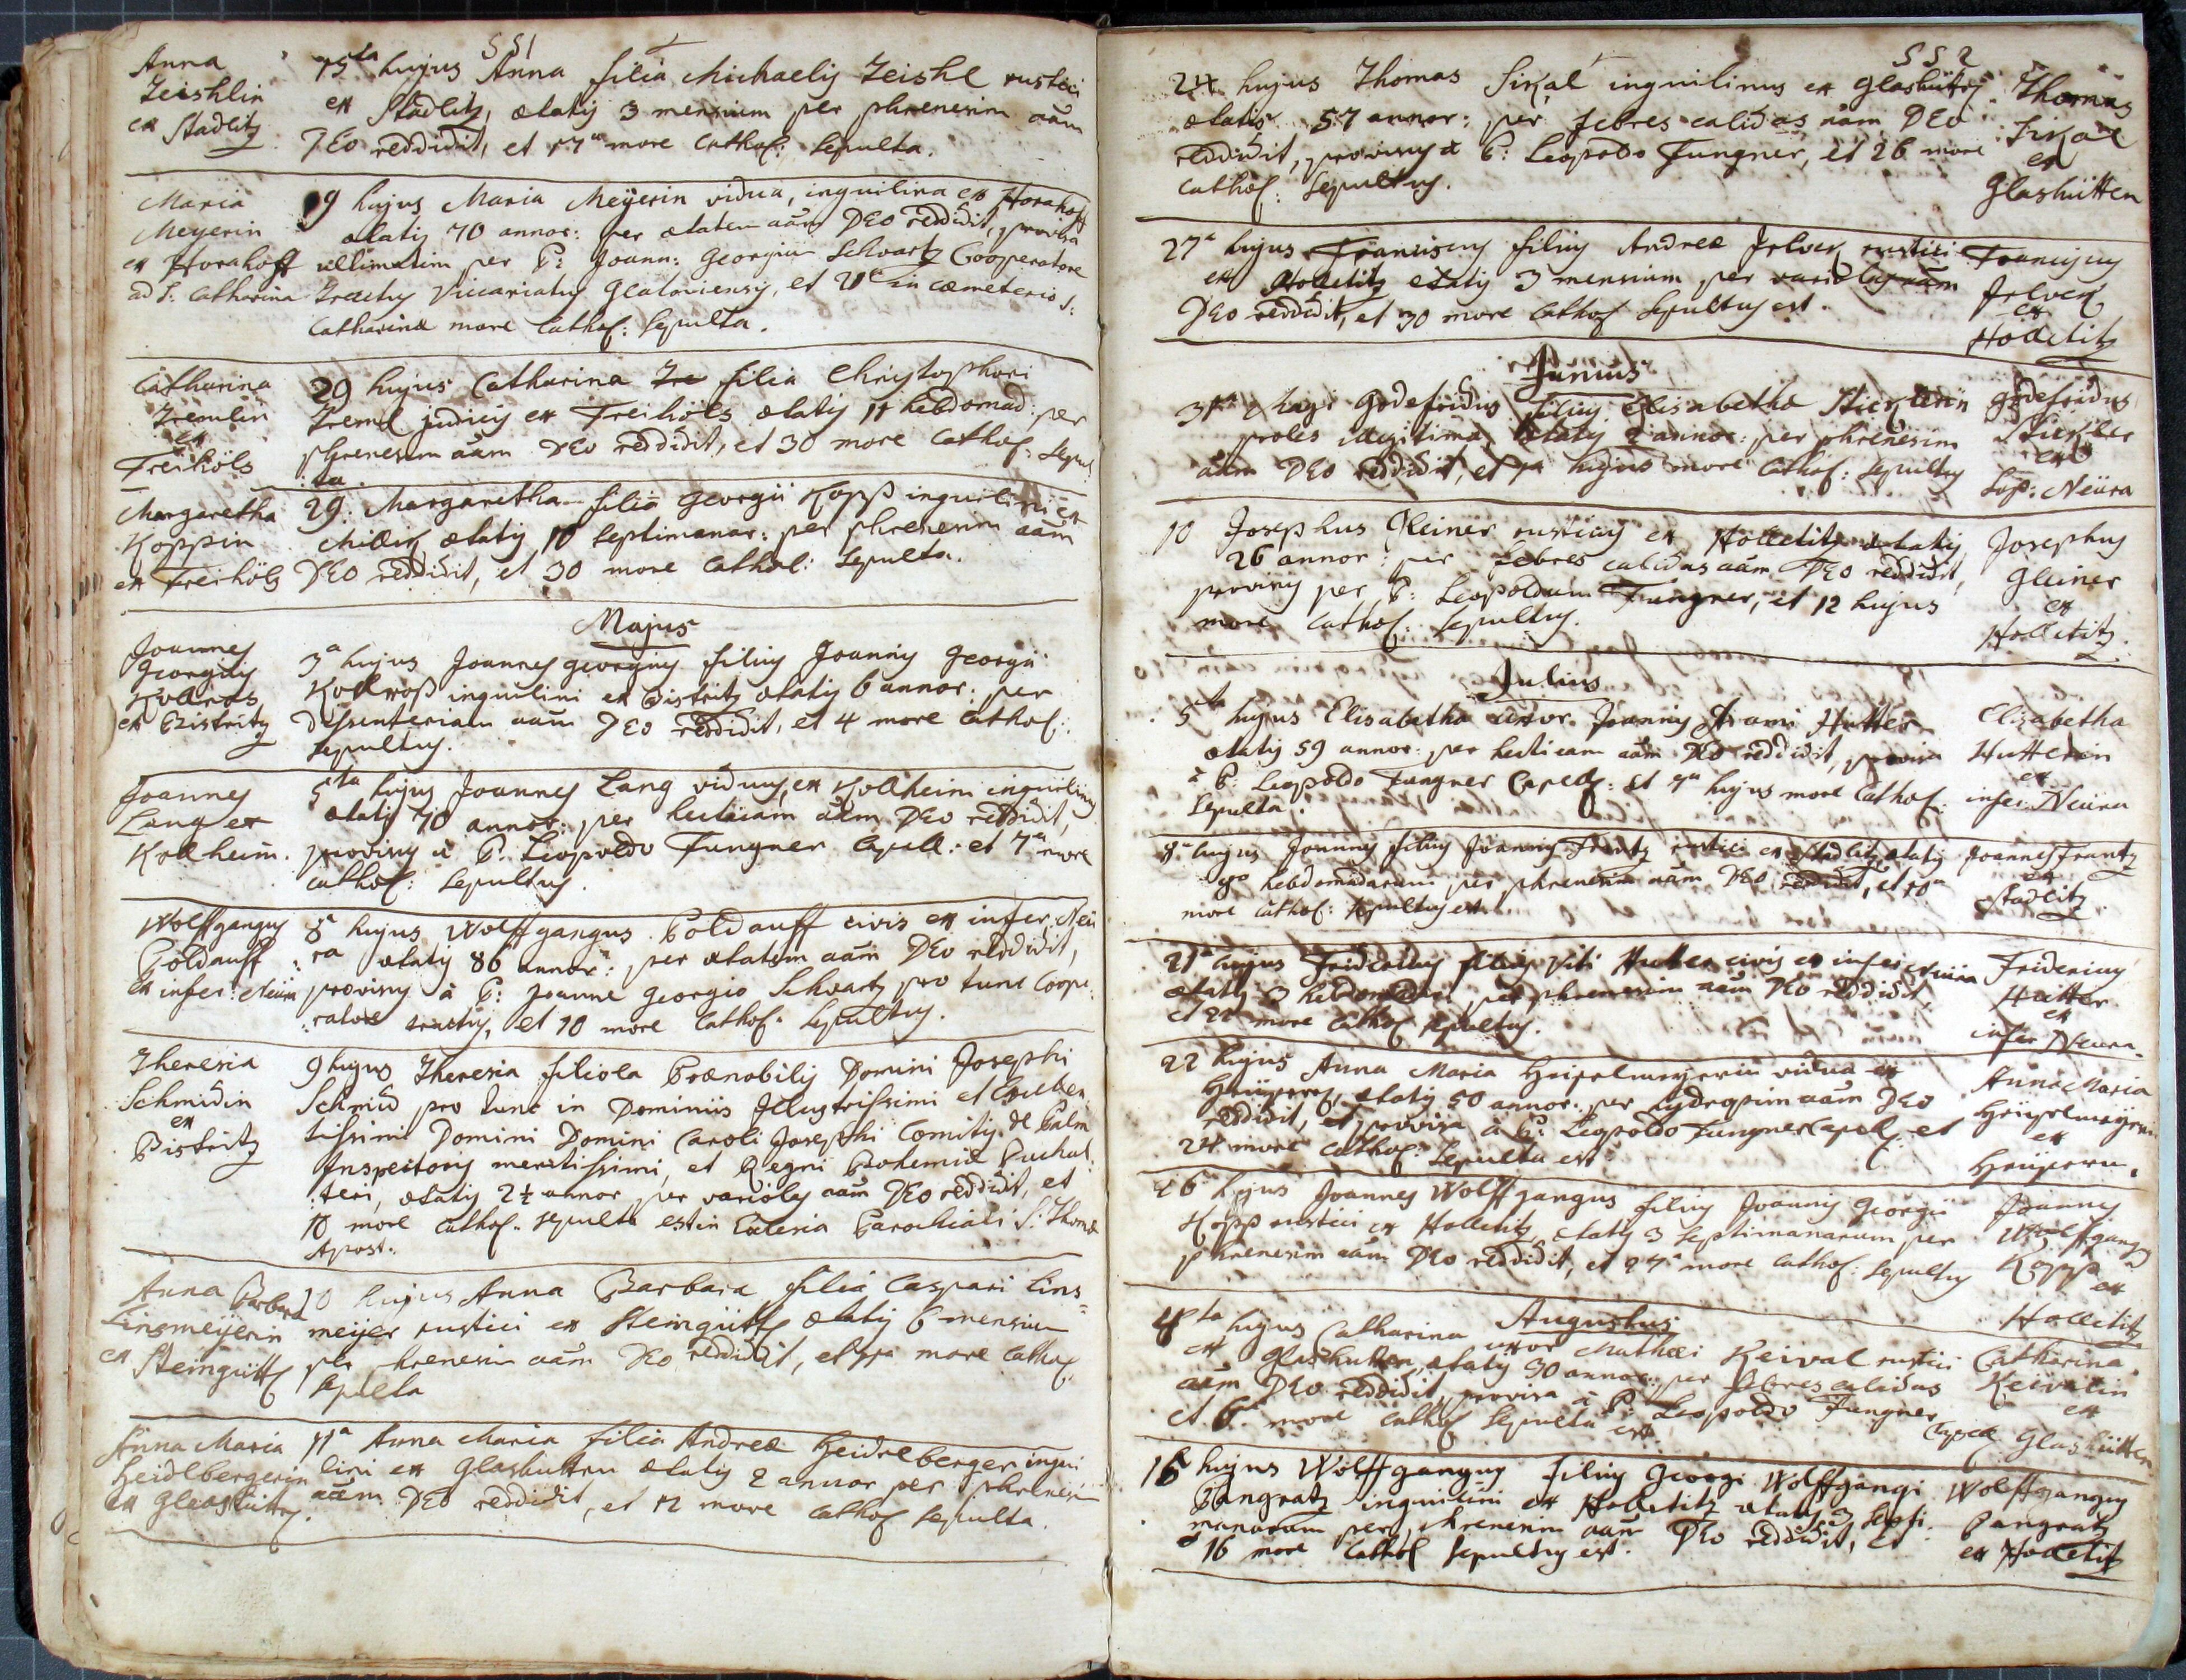 551
Anna
Zeishlin
ex Stadlitz
15ta hujus Anna filia Michaelis Zeishl rustici
ex Stadlitz, ætatis 3 mensium per phrenesim aam
DEo reddidit, et 17a more Cathol: sepulta.
Maria
Meyerin
ex Horakoff
ad S: Catharina
19 hujus Maria Meyerin vidua, inquilina ex Horakoff
ætatis 70 annor: per ætatem aam DEo reddidit, provisa
ultimatim per P: Joann: Georgiu Schvartz Cooperatore
Tractus Viccariatus Glatoviensis, et 21a in cæmeterio S:
Catharinæ more Cathol: sepulta.
Catharina
Tremlin
ex
Freihöls
29 hujus Catharina Tre filia Christophori
Treml judicis ex Freihöls ætatis 11 hebdomad: per
phrenesim aam DEo reddidit, et 30 more Cathol: sepul
ta.
Margaretha
Koppin
ex Freihöls
29: Margaretha filia Georgii Kopp inquilini ex
ætatis 10 septimanar: per phrenesim aam
DEo reddidit, et 30 more Cathol: sepulta.
Majus
Joannes
Georgius
Kollros
ex Bistritz
3a hujus Joannes Georgius filius Joannis Georgii
Kollross inquilini ex Bistritz ætatis 6 annor: per
Dissenteriam aam DEo reddidit, et 4 more Cathol:
sepultus.
Joannes
Lang ex
Kollheim.
5ta hujus Joannes Lang viduus, ex Kollheim inquilinus
ætatis 70 annor: per hecticam aam DEo reddidit,
provisus a P: Leopoldo Fungner Capell: et 7a more
Cathol: sepultus.
Wolffgangus
Poldauff
ex infer: Neüra
8a hujus Wolffgangus Poldauff civis ex infer: Neü
ra ætatis 86 annor: per ætatem aam DEo reddidit,
provisus à P: Joanne Georgio Schvartz pro tunc Coope:
:ratore tractus, et 10 more Cathol: sepultus.
Theresia
Schmidin
ex
Bistritz
9 hujus Theresia filiola Prænobilis Domini Josephi
Schmid pro tunc in Dominiis Illustrissimi et Excellen
tissimi Domini Domini Caroli Josephi Comitis de Palm
Inspectoris meritissimi, et Regni Bohemiæ Buchal:
:teri, ætatis 2½ annor per variolas aam DEo reddidit, et
10 more Cathol. sepulta est in Ecclesia Parochiali S: Thomæ
Apost:.
Anna Barbara
Linsmeÿerin
ex Steingütt
10 hujus Anna Barbara filia Caspari Lins=
meÿer rustici ex Steingütt ætatis 6 mensium
per phrenesim aam DEo reddidit, et 11a more Cathol:
sepulta
Anna Maria
Heidlbergerin
ex Glashütten.
11a Anna Maria filia Andreæ Heidelberger inqui
lini ex Glashutten ætatis 2 annor per phrenesi
aam DEo reddidit, et 12 more Cathol sepulta.
552
24 hujus Thomas Sikal inquilinus ex Glashütten
ætatis 57 annor: per febres calidas aam DEo
reddidit, provisus à P: Leopoldo Fungner, et 26 more
Cathol: sepultus.
Thomas
Sikal
ex
Glashütten
27a hujus Franciscus filius Andreæ rustici
ex Holletitz ætatis 3 mensium per variolas aam
DEo reddidit, et 30 more Cathol sepultus est.
Franciscus
ex
Holletitz
Junius
31a Maji Godefridus filius Elisabetha Sticklerin
proles illegitima, ætatis 2 annor: per phrenesim
aam DEo reddidit, et 1a hujus more Cathol: sepultus
Godefridus
Stickler
ex
Sup: Neüra
10 Josephus Gleiner rusticus ex Holletitz ætatis
26 annor: per febres calidas aam DEo reddidit,
provisus per P: Leopoldum Fungner, et 12 hujus
more Cathol: sepultus.
Josephus
Gleiner
ex
Holletitz.
Julius
5ta hujus Elisabetha uxor Joannis Hutter
ætatis 59 annor: per hecticam aam DEo reddidit, provisa
à P: Leopoldo Fungner Capell: et 7a hujus more Cathol:
sepulta.
Elisabetha
Hutterin
ex
infer: Neüra
8a hujus Joannes filius Joannis Frantz rustici ex Stadlitz ætatis
hebdomadarum per phrenesim aam DEo reddidit, et 10a
more Cathol: sepultus est.
Joannes Frantz
ex
Stadlitz
21a hujus Fridericus filius Viti Hutter civis ex infer: Neüra
ætatis 3 hebdomadar: per phrenesim aam DEo reddidit,
et 22 more Cathol sepultus.
Fridericus
Hutter
ex
infer Neüra.
22 hujus Anna Maria vidua ex
ætatis 50 annor: per hydropsim aam DEo
reddidit, et provisa à P: Leopoldo Fungner Capell: et
24 more Cathol: sepulta est.
Anna Maria
ex
26 hujus Joannes Wolffgangus filius Joannis Georgii
Kopp rustici ex Holletitz ætatis 3 septimanarum per
phrenesim aam DEo reddidit, et 27a more Cathol: sepultus
Joannes
Wolffgangus
Kopp
ex
Holletitz
Augustus
4ta hujus Catharina uxor Mathæi Keival rustici
ex Glashutten, ætatis 30 annor: per febres calidas
aam DEo reddidit provisa à P: Leopoldo Fungner
et 6a more Cathol sepulta est. Capell
Catharina
Keivalin
ex
Glashütten
15 hujus Wolffgangus filius Georgi Wolffgangi
Pangratz inquilini ex Holletitz ætatis 3 septi
manarum per phrenesim aam DEo reddidit, et
16 more Cathol sepultus est.
Wolffgangus
Pangratz
ex Holletitz